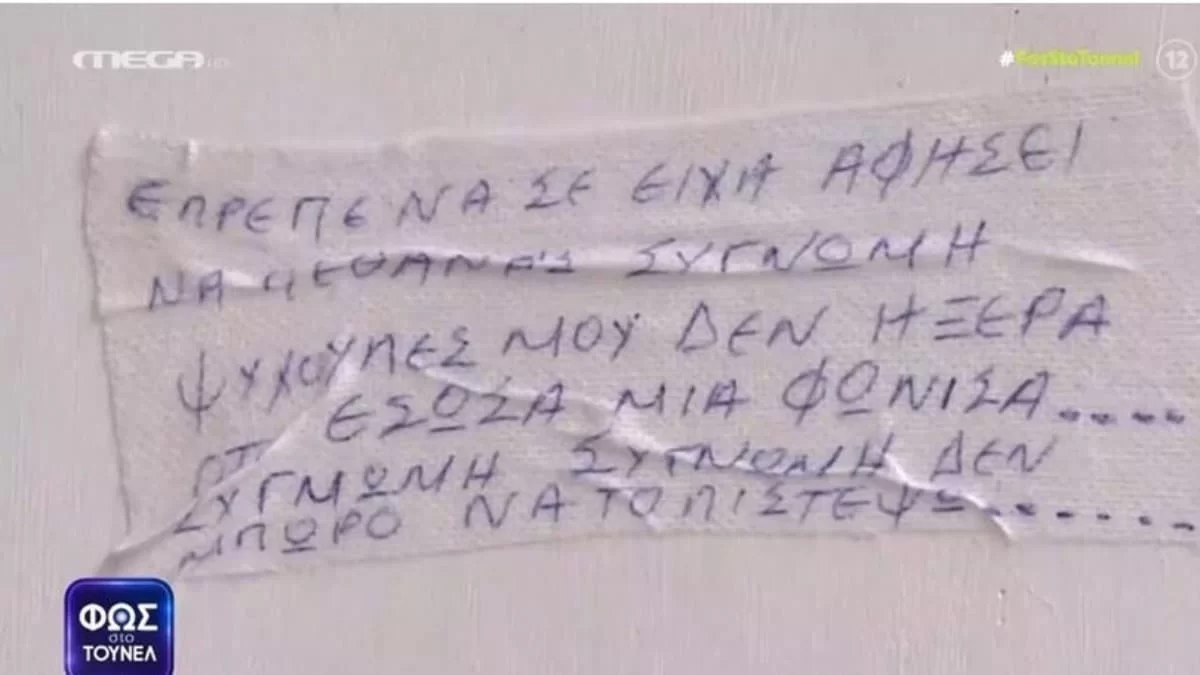 MEGA HD
#FosStoTounel 12
ΕΠΡΕΠΕ ΝΑ ΣΕ ΕΙΧΑ ΑΦΗΣΕΙ
ΝΑ ΣΥΓΝΩΜΗ
ΨΥΧΟΥΛΕΣ ΜΟΥ ΔΕΝ ΗΞΕΡΑ
ΟΤΙ ΕΣΩΣΑ ΜΙΑ ΦΩΝΙΣΑ.....
ΣΥΓΜΩΜΗ ΣΥΓΝΩΜΗ ΔΕΝ
ΜΠΩΡΟ ΝΑ ΤΟ ΠΙΣΤΕΨΩ.......
ΦΩΣ
στο
ΤΟΥΝΕΛ